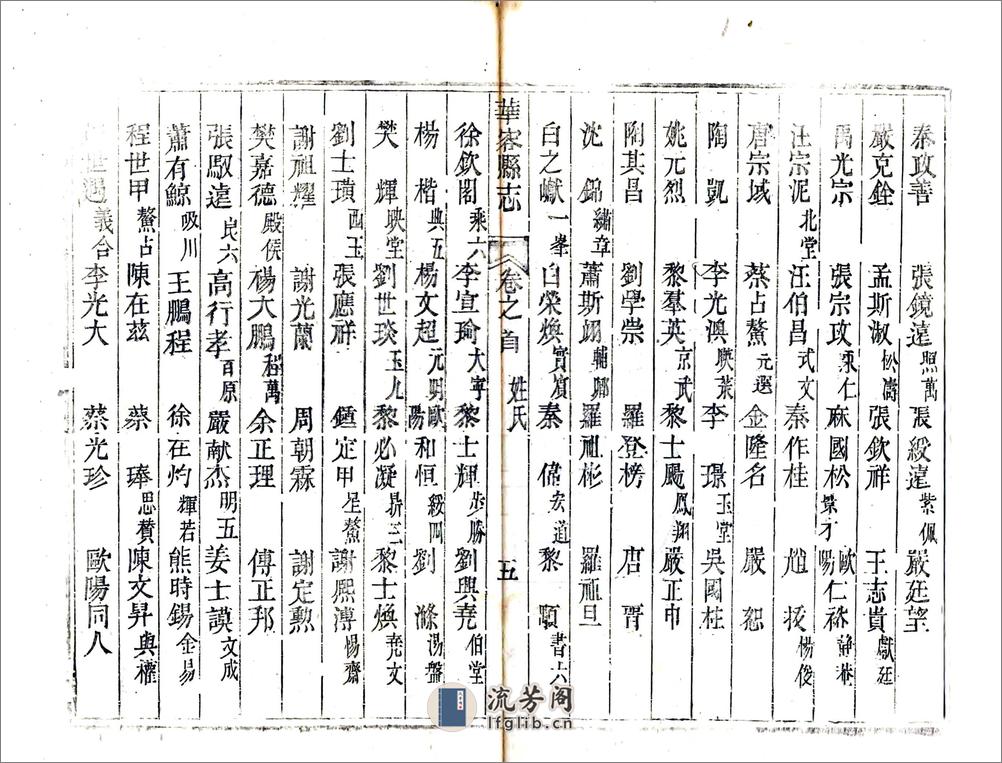 秦政善 張鏡遠照萬 張綬遠紫佩 嚴廷望
嚴克銓 孟斯淑松濤 張欽祥 王志貴獻廷
禹光宗 張宗政秉仁 麻國松景才 歐陽仁裕靜菴
汪宗泥北堂 汪伯昌式文 秦作桂 趙 授楊俊
唐宗域 蔡占鰲元選 金隆名 嚴 恕
陶 凱 李光澳映葉 李 璟玉堂 吳國柱
姚元烈 黎羣英京武 黎士颺鳳翔 嚴正中
陶其昌 劉學崇 羅登榜 唐 胥
沈 錦繡章 蕭斯翊輔鄰 羅祖彬 羅祖旦
白之巘一峯 白榮煥實濱 秦 偉宏道 黎 顒書六
華容縣志 卷之首 姓氏 五
徐欽閣乘六 李宣瑜大宇 黎士輝步勝 劉興堯伯堂
楊 楷典五 楊文超元明 歐陽和恒綏四 劉 滌湯盤
樊 輝映堂 劉世琰玉九 黎必凝昇三 黎士煥堯文
劉士璜西玉 張應祥 鍾定甲星鰲 謝熙溥楊齋
謝祖耀 謝光蘭 周朝霖 謝定勲
樊嘉德殿侯 楊大鵬程萬 余正理 傅正邦
張馭遠良六 高行孝百原 嚴献杰明五 姜士謨文成
蕭有鯨吸川 王鵬程 徐在灼輝若 熊時錫金易
程世甲鰲占 陳在茲 蔡 琫思贊 陳文昇與權
世遇義合 李光大 蔡光珍 歐陽同人
流芳阁
lfglib.cn